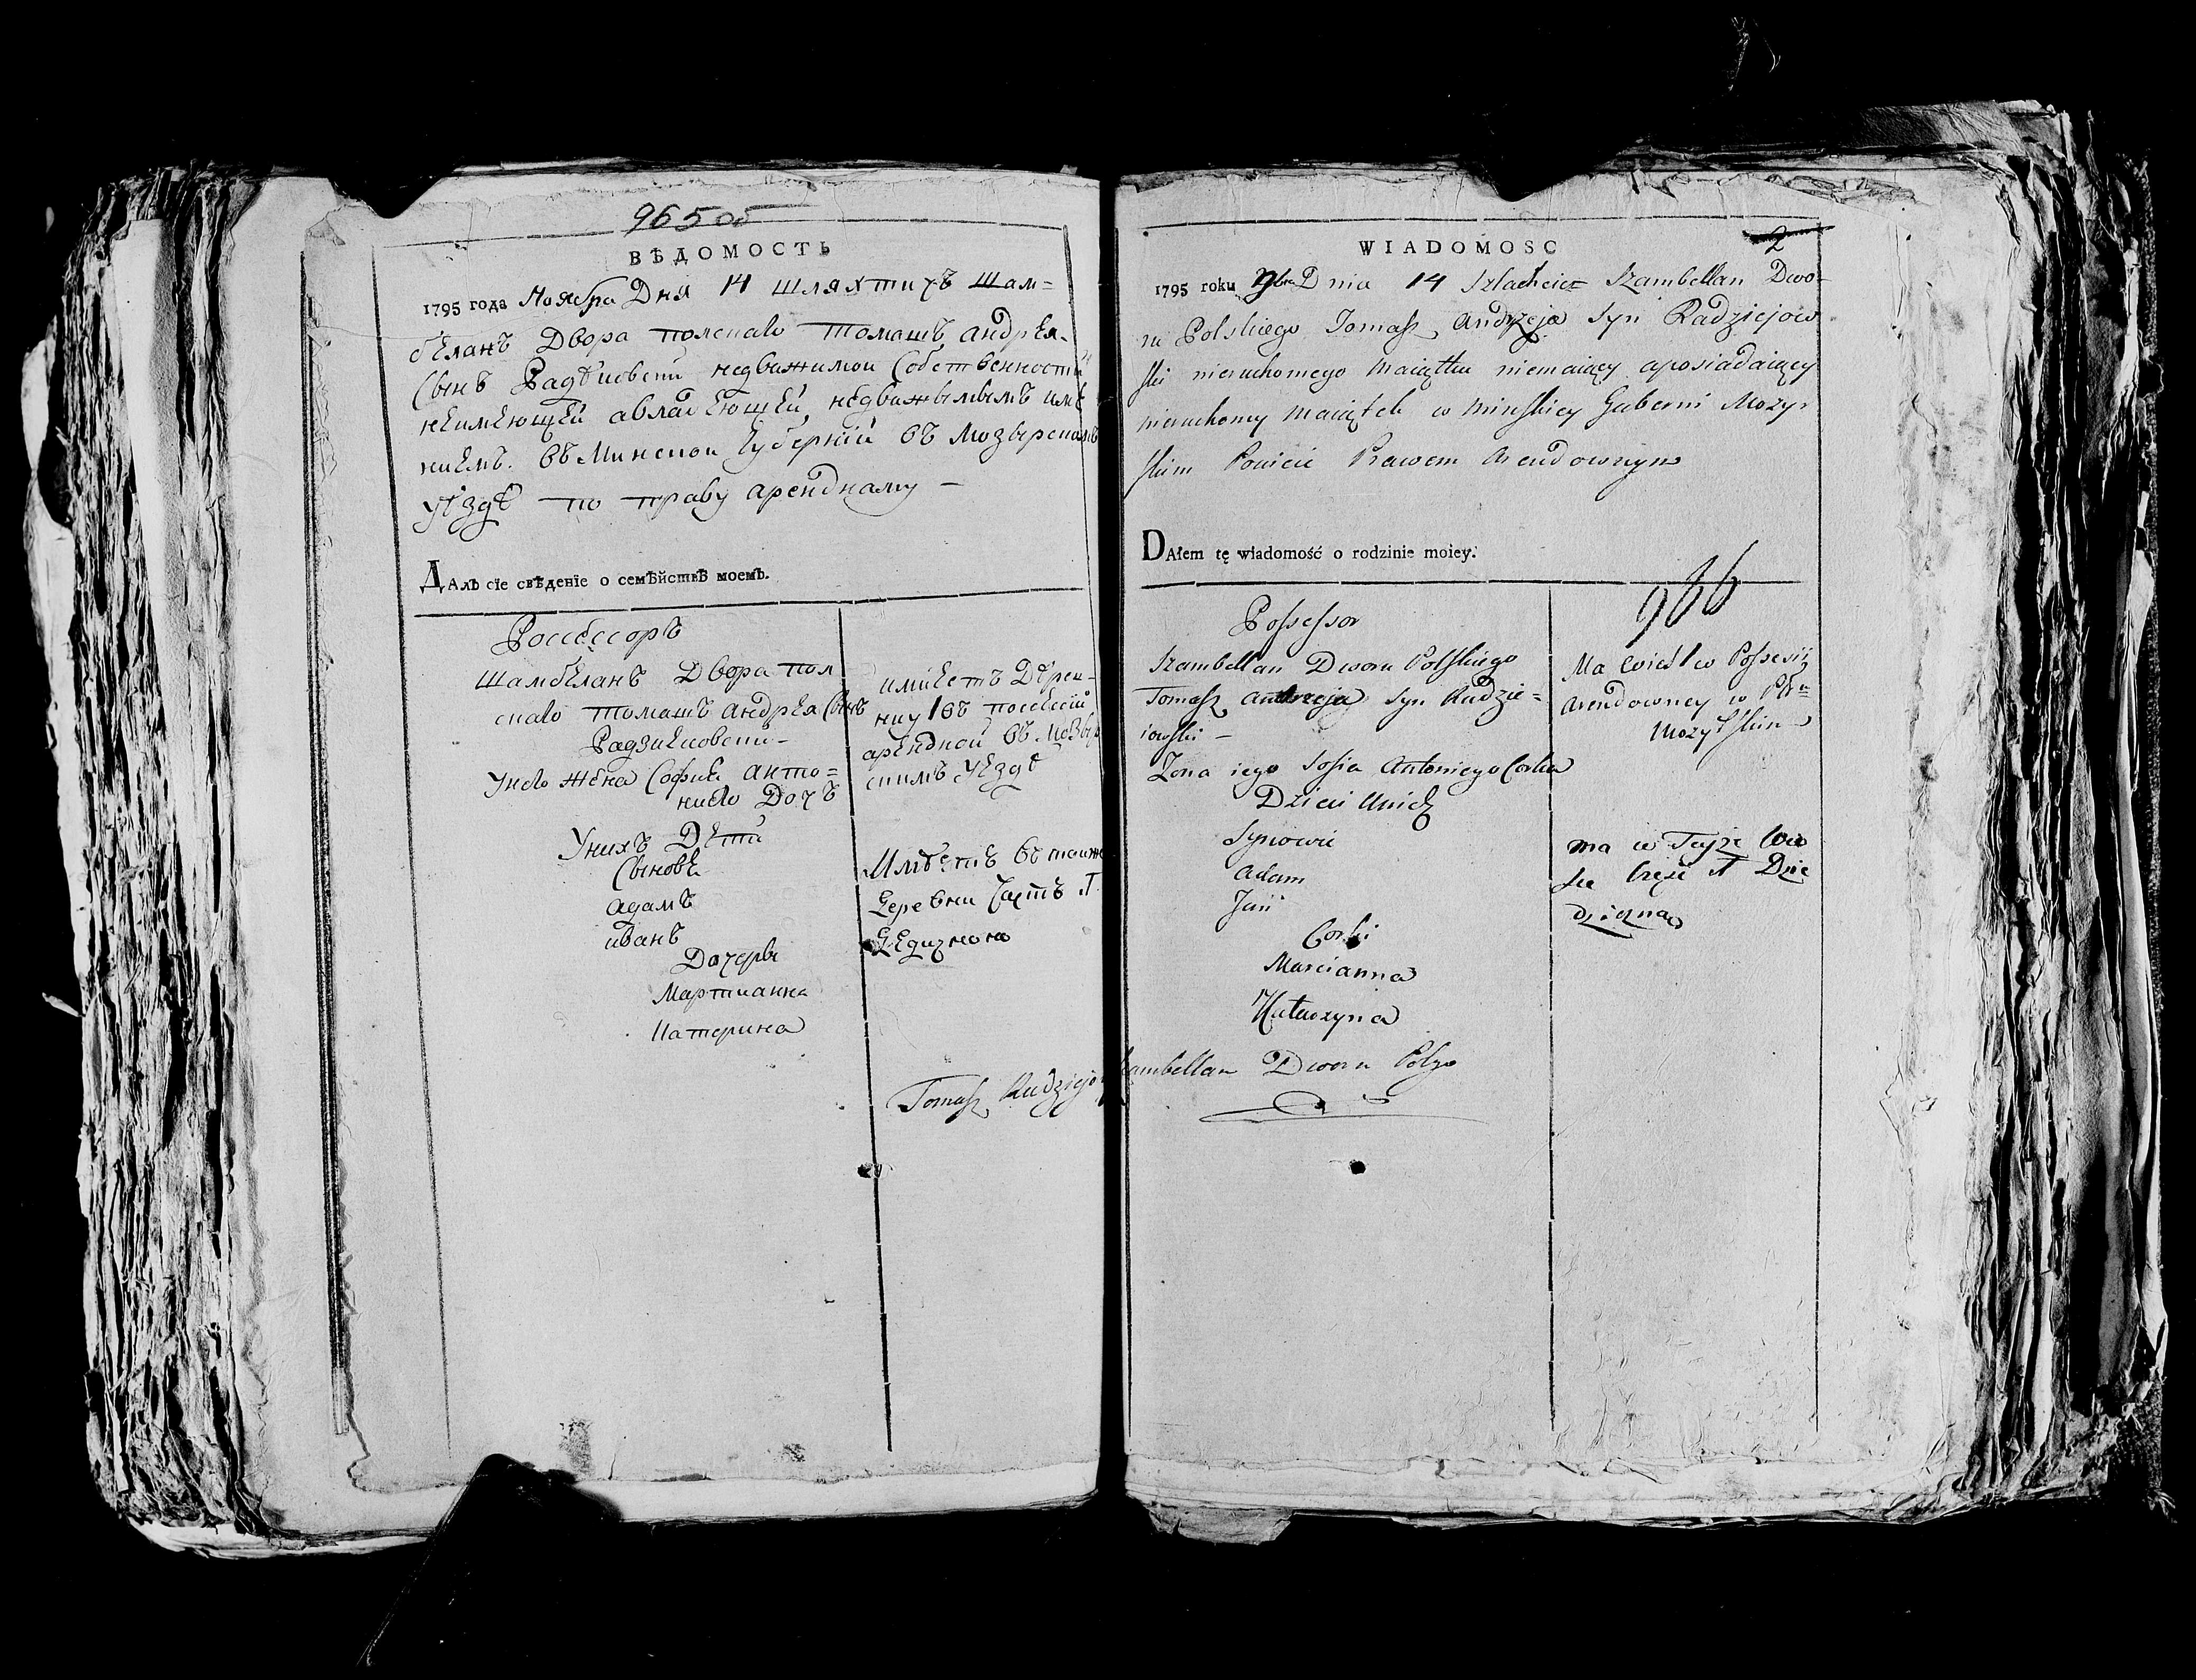 965 об
ВѢДОМОСТЬ
1795 года Ноября Дня 14 шляхтичъ шам=
бѣланъ Двора полскаго Томашъ андрѣя
Сынъ Радзѣиовски недвижимои Собственности
неимеющеи авладеющеи недвижымымъ име
ниемъ. въ Минскои губернїи въ Мозырскомъ
уѣздѣ по праву арендному —
ДАлъ сїе свѣденїе о семѣйствѣ моемъ.
Россессоръ
Шамбеланъ Двора пол
скаго томашъ андрея Сынъ
Радзиеиовски
Унего жена София анто=
ниего Дочъ
Унихъ Дети
Сынове
адамъ
иванъ
Дочери
Мартианна
Катерина
имиетъ Дерев-
ню 1 въ посессии
арендной въ Мозыр
скимъ Уезде
Имѣетъ въ тоиже
Деревни Частъ
Дедичною
Tomasz Radziejo
WIADOMOSC
2
1795 roku 9bra Dnia 14 Szlachcic Szambellan Dwo-
ru Polskiego Tomasz Andrzeja Syn Radziejow
ski nieruchomego maiątku niemaiący aposiadaiący
nieruchomy maiątek w minskiey Guberni Mozyr
skim Powicie Prawem Arendownym
DAłem tę wiadomość o rodzinie moiey.
966
Possessor
Szambellan Dworu Polskiego
Tomasz andrzeja Syn Radzie=
iowski —
Zona iego Sofia Antoniego Corka
Dzieci Unich
Synowie
Adam
Jan
Corki
Marcianna
Katarzyna
Ma wieś 1 w Possesii
Arendowney w Pttu
Mozyrskim
ma w Teyże Wio
sce Częsc Dzie
dziczna
Szambellan Dworu Polgo